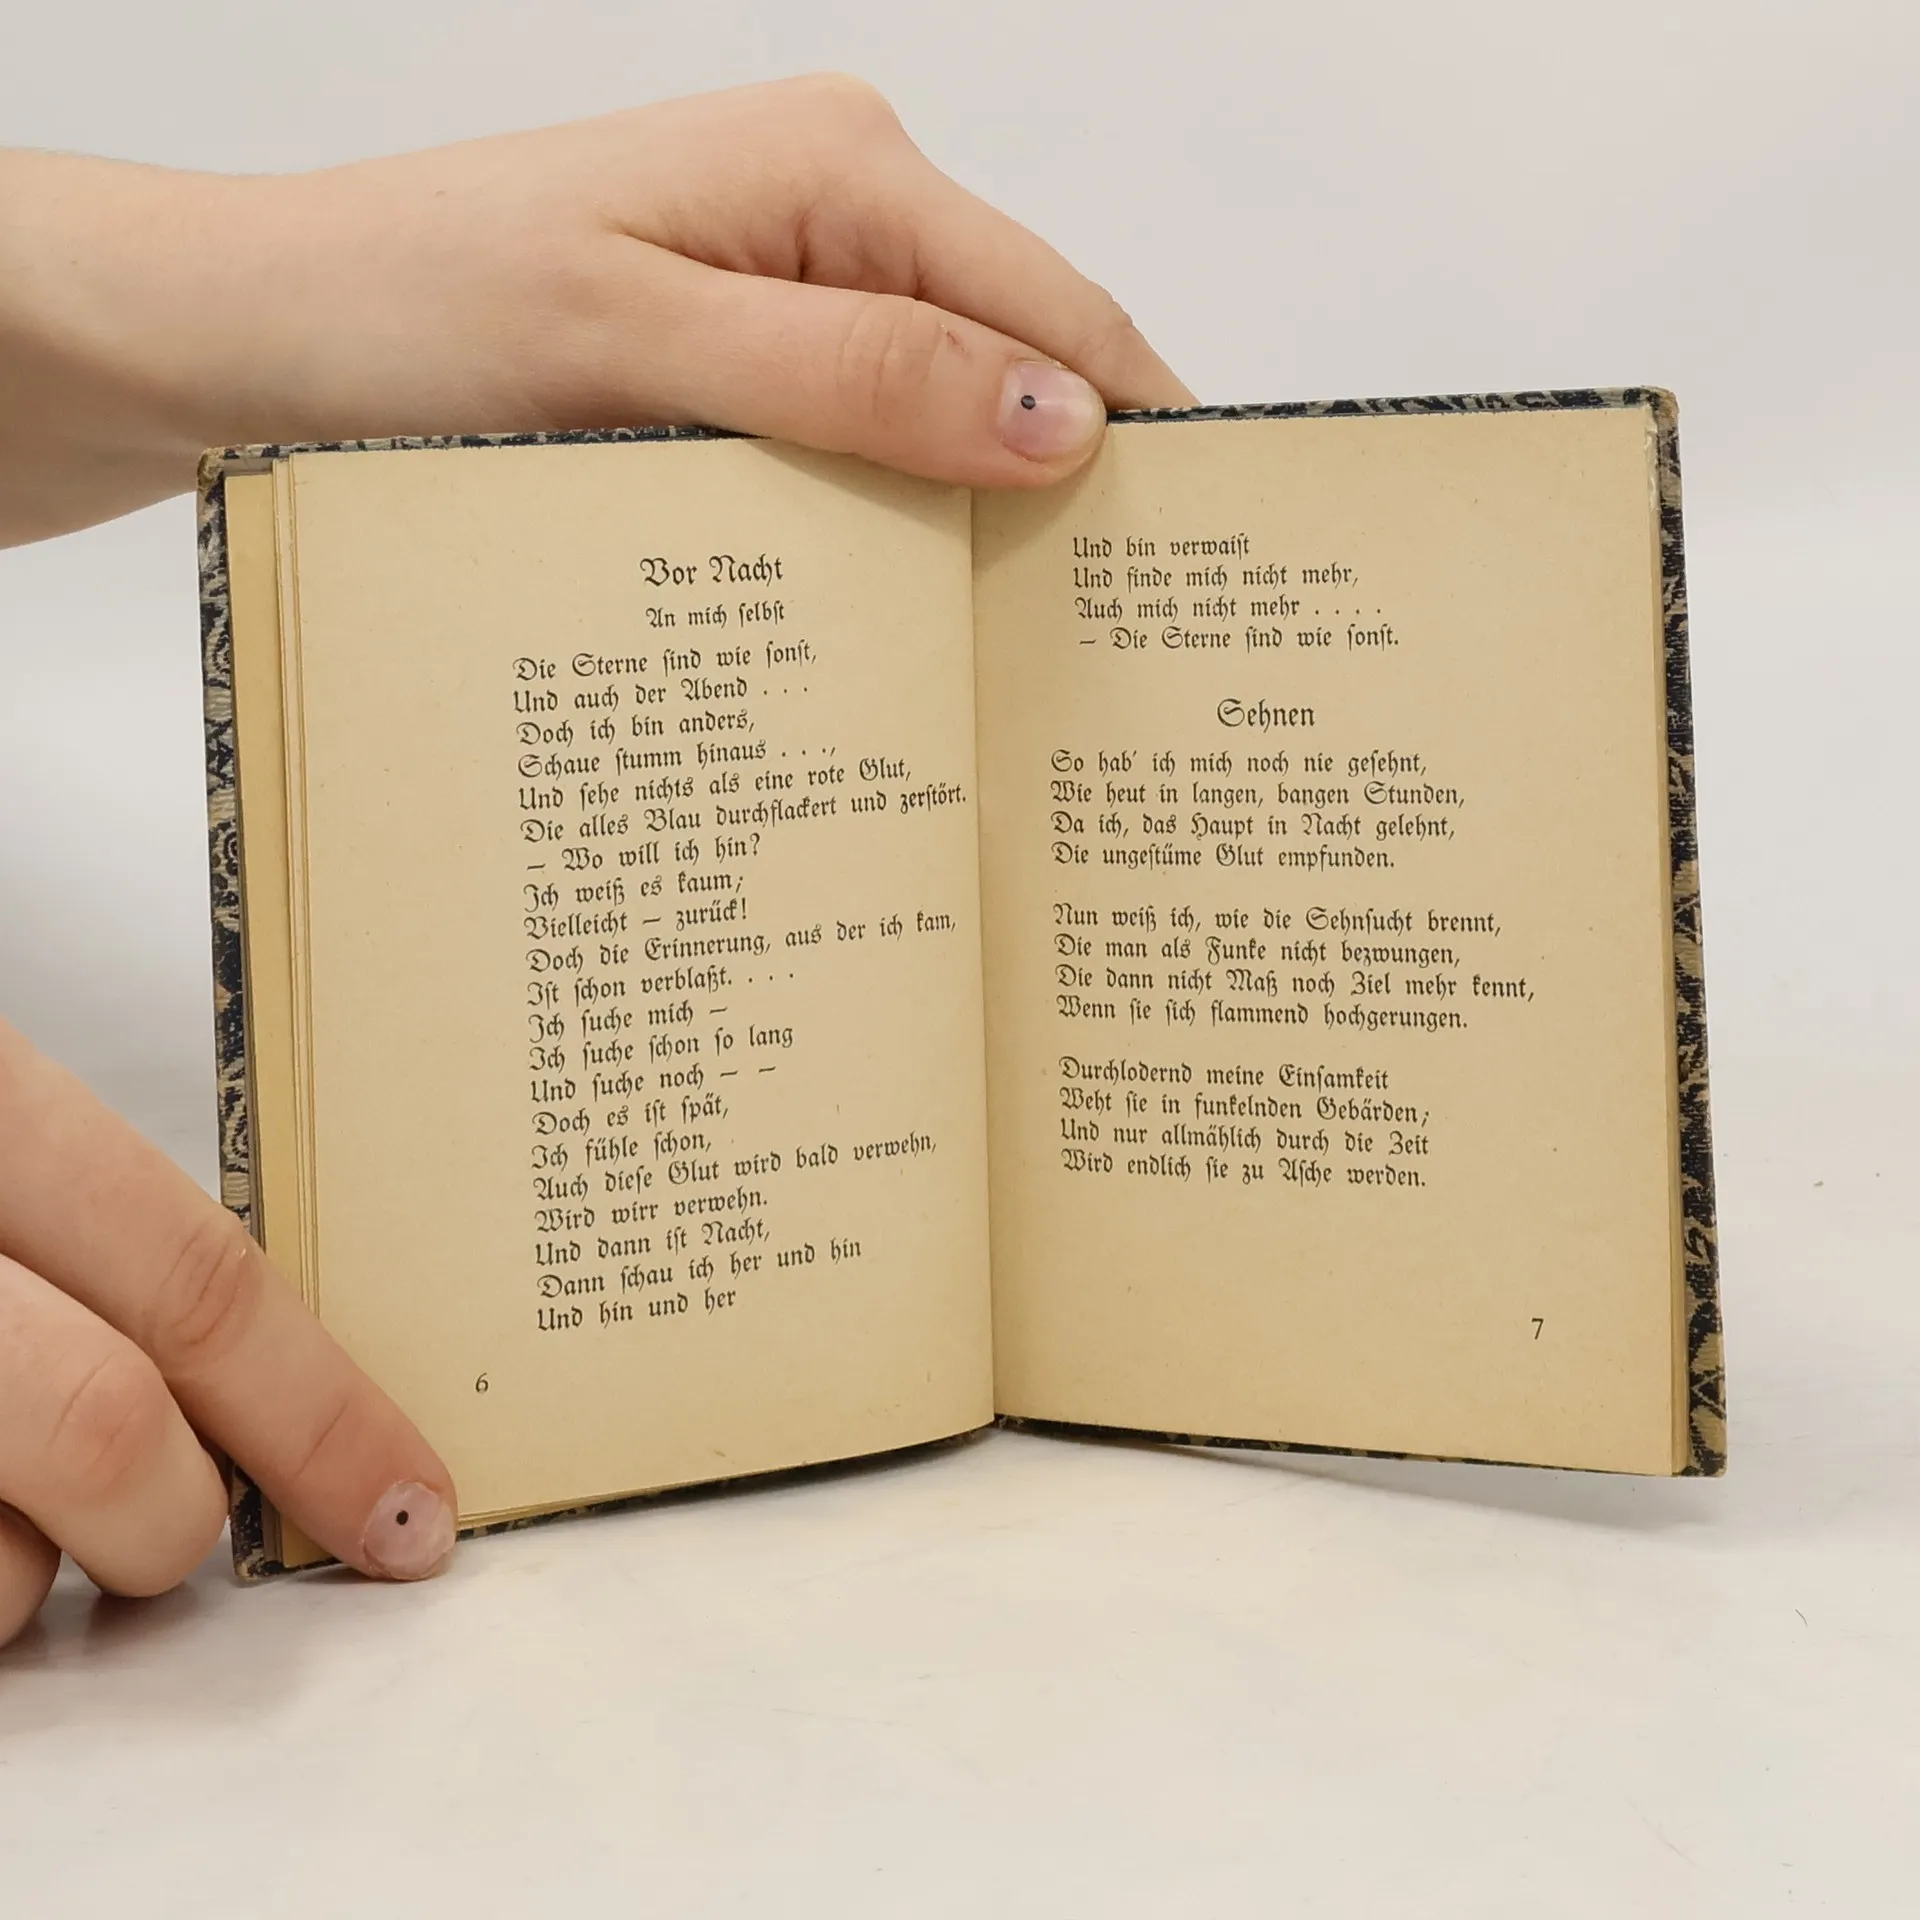 Vor Nacht
An mich ſelbſt
Die Sterne ſind wie ſonſt,
Und auch der Abend . . .
Doch ich bin anders,
Schaue ſtumm hinaus . . .,
Und ſehe nichts als eine rote Glut,
Die alles Blau durchflackert und zerſtört.
— Wo will ich hin?
Ich weiß es kaum;
Vielleicht — zurück!
Doch die Erinnerung, aus der ich kam,
Iſt ſchon verblaßt. . . .
Ich ſuche mich —
Ich ſuche ſchon ſo lang
Und ſuche noch — —
Doch es iſt ſpät,
Ich fühle ſchon,
Auch dieſe Glut wird bald verwehn,
Wird wirr verwehn.
Und dann iſt Nacht,
Dann ſchau ich her und hin
Und hin und her
6
Und bin verwaiſt
Und finde mich nicht mehr,
Auch mich nicht mehr . . . .
— Die Sterne ſind wie ſonſt.
Sehnen
So hab' ich mich noch nie geſehnt,
Wie heut in langen, bangen Stunden,
Da ich, das Haupt in Nacht gelehnt,
Die ungeſtüme Glut empfunden.
Nun weiß ich, wie die Sehnſucht brennt,
Die man als Funke nicht bezwungen,
Die dann nicht Maß noch Ziel mehr kennt,
Wenn ſie ſich flammend hochgerungen.
Durchlodernd meine Einſamkeit
Weht ſie in funkelnden Gebärden;
Und nur allmählich durch die Zeit
Wird endlich ſie zu Aſche werden.
7